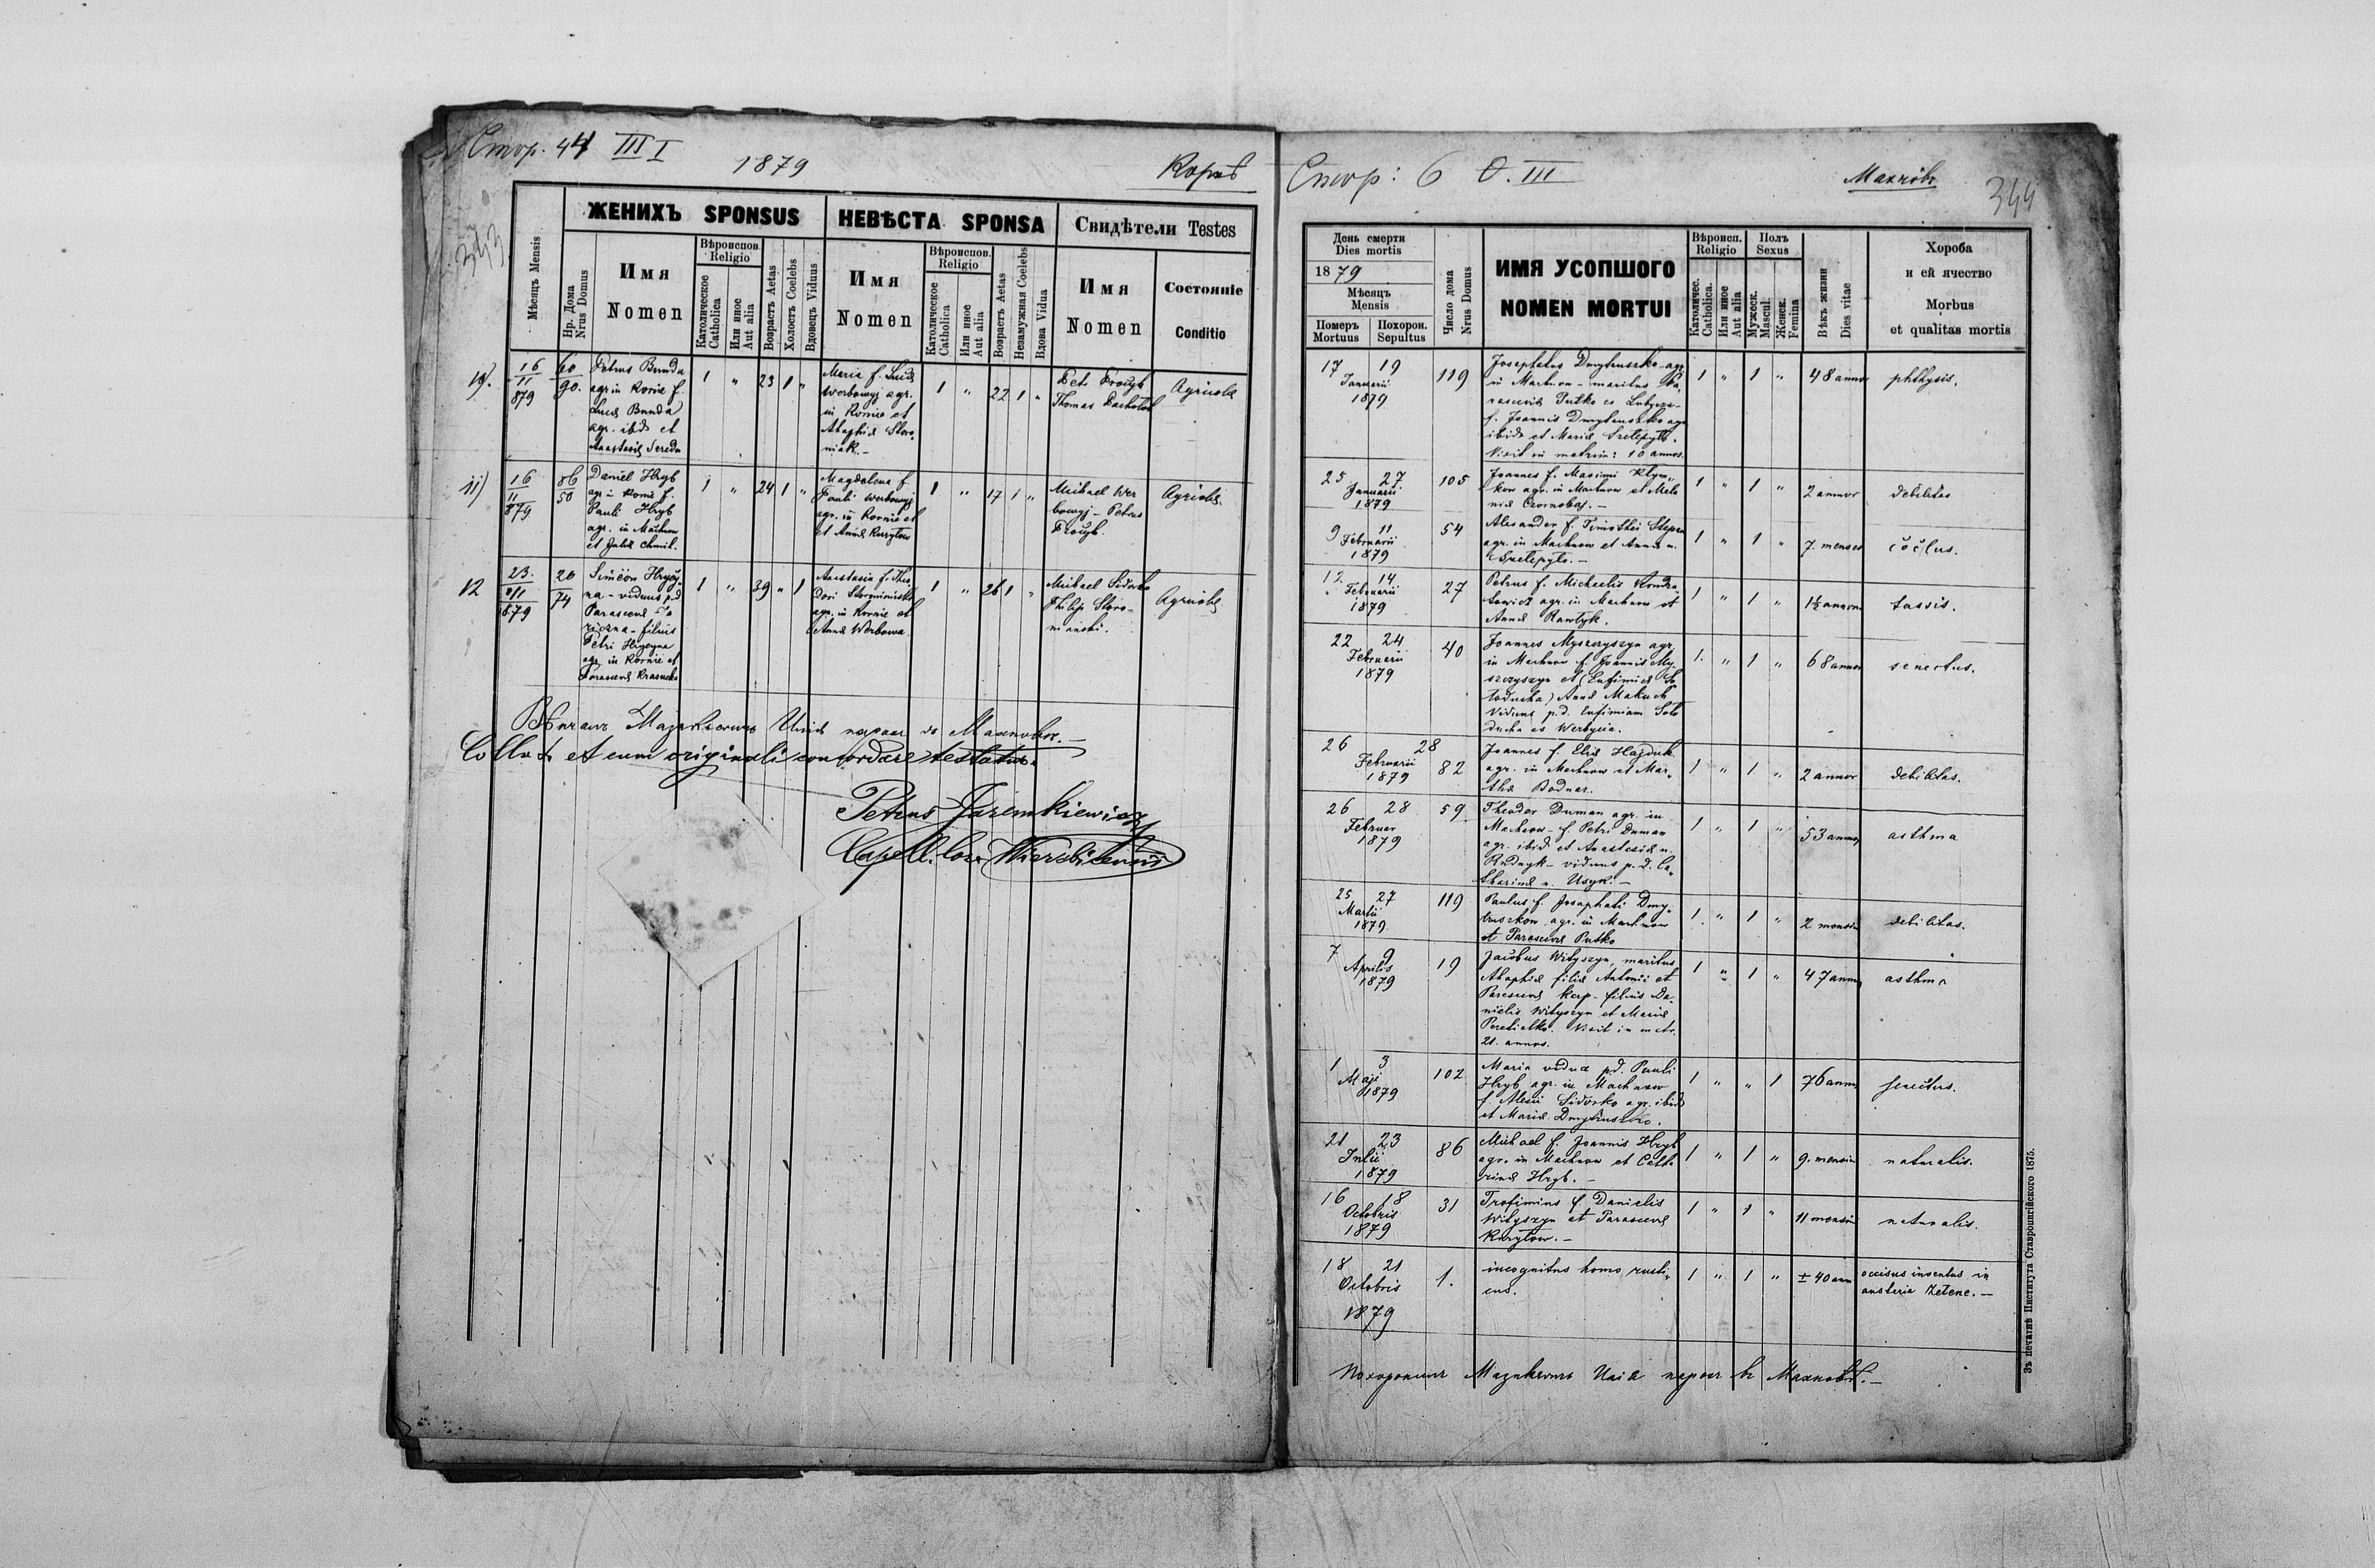 Стор. 44 III I
1879
Корнѣ
343
ЖЕНИХЪ SPONSUS
НЕВѢСТА SPONSA
Свидѣтели Testes
Мѣсяць Mensis
Нр. Дома
Nrus Domus
Имя
Nomen
Вѣроиспов.
Religio
Католическое
Catholica
Или иное
Aut alia
Возрастъ Aetas
Холостъ Coelebs
Вдовецъ Viduus
Имя
Nomen
Вѣроиспов.
Religio
Католическое
Catholica
Или иное
Aut alia
Возрастъ Aetas
Незамужная Coelebs
Вдова Vidua
Имя
Nomen
Состояніе
Conditio
10.
16
11
879
60
90.
Petrus Bunda
agr. in Kornie f.
Lucæ Bunda
agr. ibid. et
Anastasiæ Sereda
1 " 23 1 "
Maria f. Lucæ
Werbowyj agr.
in Kornie et
Ahaphiæ Storo-
niak.-
1 " 22 1 "
Petr
Thomas
Agricolæ
11)
16
11
879
86
58
Daniel Hryb
agr. in Kornie f.
Pauli Hryb
agr. in Machnow
et Juliæ Chmil.
1 " 24 1 "
Magdalena f.
Pauli Werbowyj
agr. in Kornie et
et Annæ Kurytow
1 " 17 1 "
Michael Wer
bowyj - Petrus
Agricolæ.
12
23.
11
879
20
74
Simeon Hrycy-
na - viduus p.d.
Parascevæ
filius
Petri Hrycyna
agr. in Kornie et
Parascevæ
1 " 39 " 1
Anastasia f. Theo
dori
agr. in Kornie et
Annæ Werbowa
1 " 26 1 "
Michael Sidorko
Philip Storo-
niański.
Agricolæ
Вѣнчалъ Мазикевичъ парохъ Махновѣ.-
Collat. et cum originali concordare testatur.
Petrus Jaremkiewicz
Capell. Coop. Wierzbicensis
Стор: 6 О. III
Махнôвъ
344
День смерти
Dies mortis
1879
Мѣсяцъ
Mensis
Померъ
Mortuus
Похорон.
Sepultus
Число дома
Nrus Domus
ИМЯ УСОПШОГО
NOMEN MORTUI
Вѣроисп.
Religio
Католичес.
Catholica.
Или иное
Aut alia
Полъ
Sexus
Мужеск.
Mascul.
Женск.
Femina
Вѣкъ жизни
Dies vitae
Хороба
и ей ячество
Morbus
et qualitas mortis
17 19
Januarii
1879
119
Josephatus Dmytruszko agr.
in Machnow - maritus Pa-
rascevæ Putko es Lubycza -
f. Joannis Dmytruszko agr.
ibid. et Mariæ Szelepyło.
Vixit in matrim: 10 annos.
1 " 1 "
48 annor
phthysis.
25 27
Januarii
1879
105
Joannes f. Maximi Klym-
kow agr. in Machnow et Mela
niæ Czornobaj.-
1 " 1 "
2 annor
debilitas
9 11
Februarii
1879
54
Alexander f. Timothei
agr. in Machnow et Annæ n.
Szelepyło.-
1 " 1 "
7. menses
12 14
Februarii
1879
27
Petrus f. Michaelis Kondra-
towicz agr. in Machnow et
Annæ Pawlyk.
1 " 1 "
1½ annor
tussis.
22 24
Februarii
1879
40
Joannes Myszczyszyn agr.
in Machnow f. Joannis My-
szczyszyn et (Eufimiæ So
łoducha) Annæ Makuch
viduus p.d. Eufimiam Soło
ducha es Werbycia.
1. " 1 "
68 annor
senectus.
26 28
Februarii
1879
82
Joannes f. Eliæ Hajduk
agr. in Machnow et Mar-
thæ Bodnar.
1 " 1 "
2 annor
debilitas.
26 28
Februar
1879
59
Theodor Duman agr. in
Machnow - f. Petri Duman
agr. ibid. et Anastasiæ n.
Rudnyk - viduus p.d. Ca-
tharinæ n. Usyk.-
1 " 1 "
53 annor
asthma
25 27
Martii
1879
119
Paulus f. Josaphati Dmy-
truszkow agr. in Machnow
et Parascevæ Putko
1. " 1 "
2 mensis
debilitas.
7 9
Aprilis
1879
19
Jacobus Wityszyn, maritus
Ahaphiæ filiæ Antonii et
Parascevæ Karp - filius Da-
nielis Wityszyn et Mariæ
Peretiatko. Vixit in matr.
21. annos.
1 " 1 "
47 annor
asthma
1 3
Maji
1879
102
Maria vidua p.d. Pauli
Hryb agr. in Machnow
f. Alexii Sidorko agr. ibid
et Mariæ Dmytruszko.
1 " " 1
76 annor
senectus.
21 23
Julii
1879
86
Michael f. Joannis Hryb
agr. in Machnow et Catha
rinæ Hryb.-
1 " 1 "
9. mensis
naturalis.
16 18
Octobris
1879
31
Trofimius f. Danielis
Wityszyn et Parascevæ
Kurytow.-
1 " 1 "
11 mensis
naturalis.
18 21
Octobris
1879
1.
incognitus homo rusti-
cus.
1 " 1 "
± 40 ann
occisus inventus in
austeria Zełene.-
Похоронилъ Мазикевичъ парохъ въ Махновѣ.-
Зъ печатнѣ Института Ставропигійского 1875.